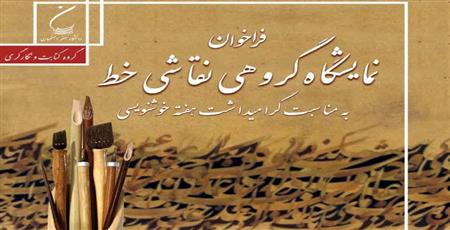 دانشگاه هنر اصفهان
گروه کتابت و نگارگری
فراخوان
نمایشگاه گروهی نقاشی خط
به مناسبت گرامیداشت هفته خوشنویسی